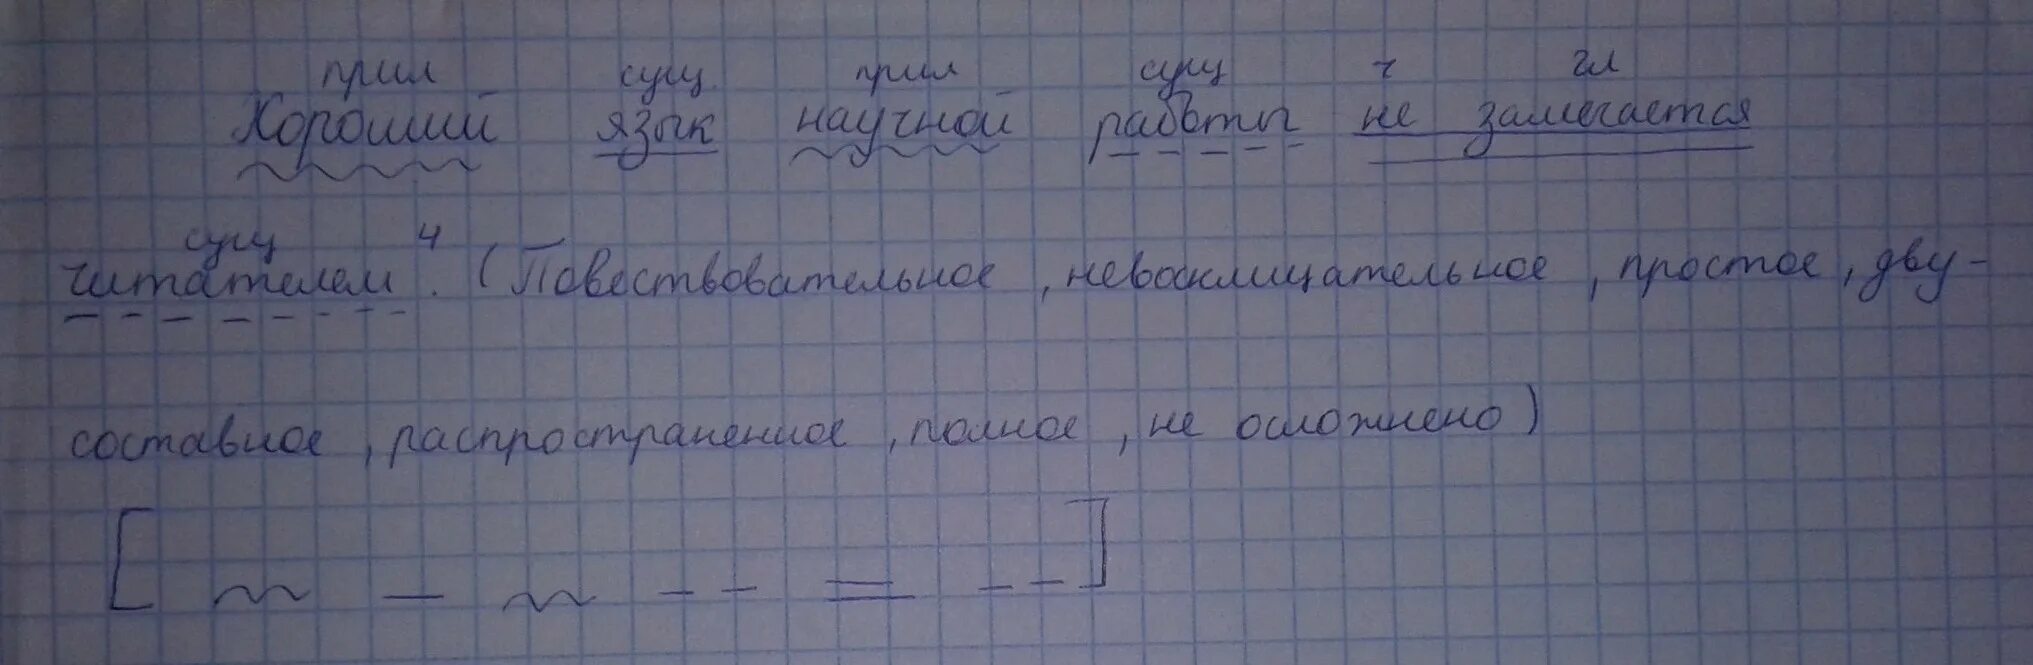 прил сущ. прил сущ ч гл
Хороший язык научной работы не замечается
сущ 4
читателем. (Повествовательное, невосклицательное, простое, дву-
составное, распространенное, полное, не осложнено)